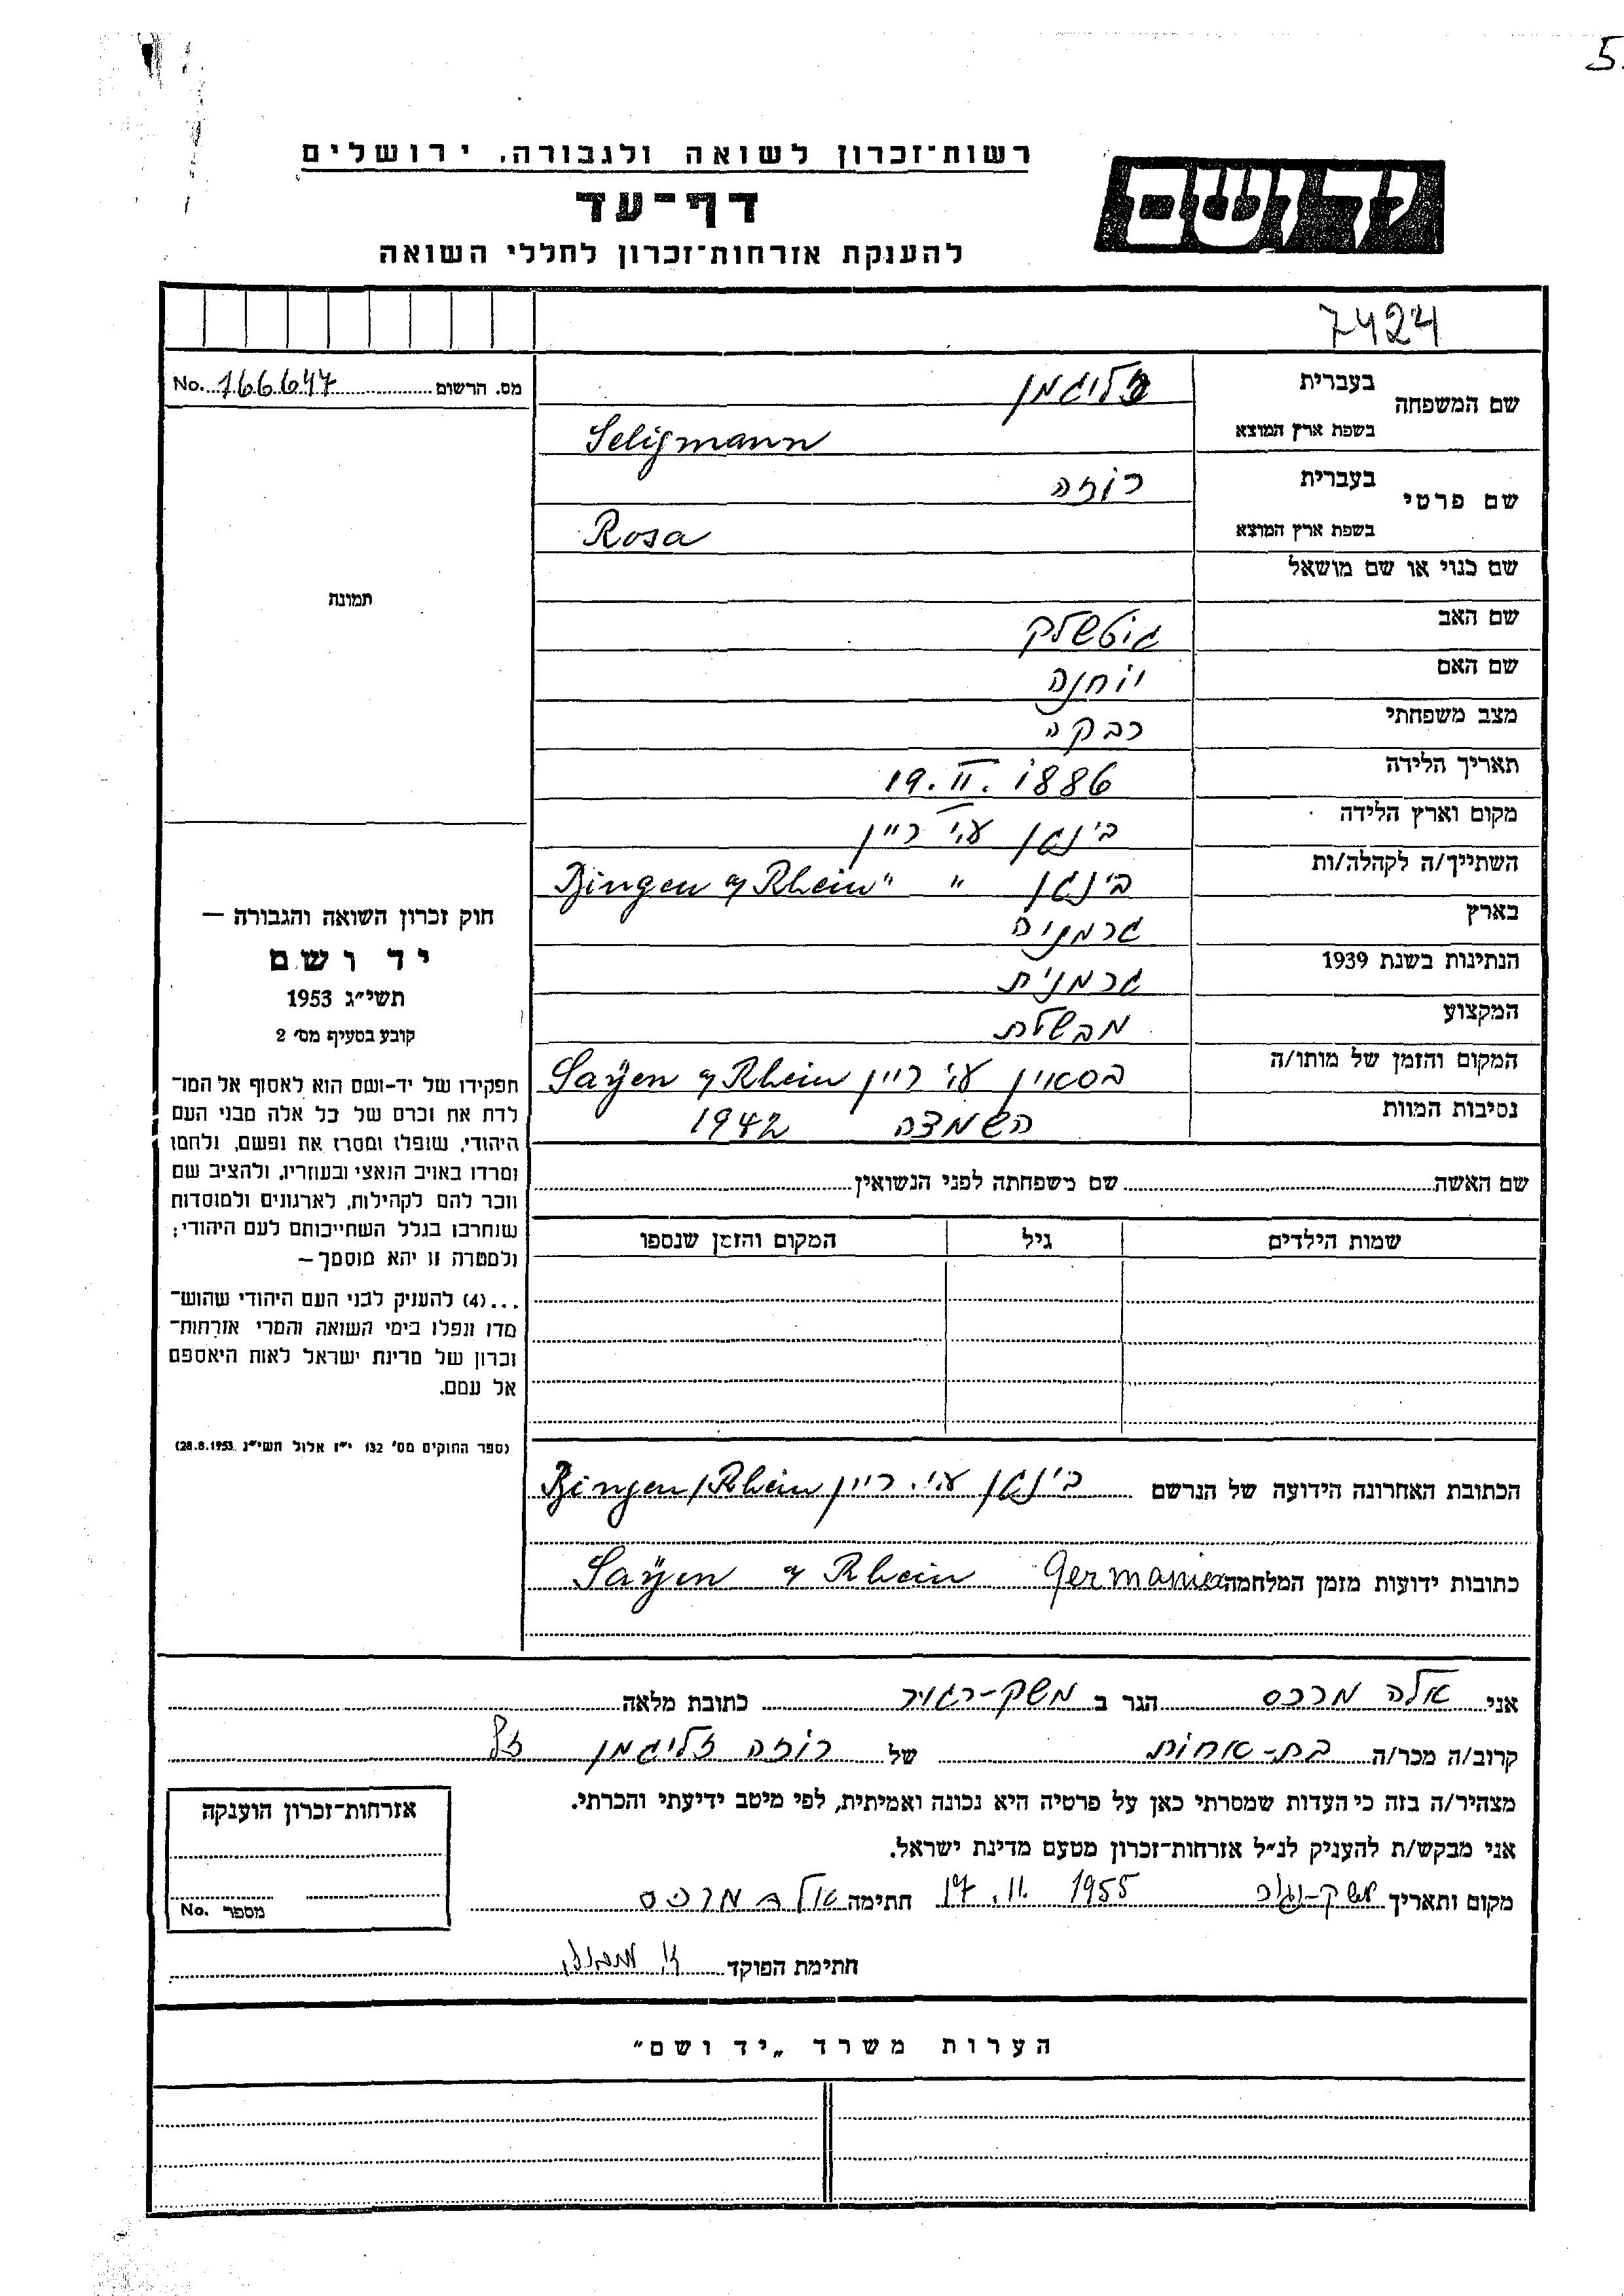 5.
רשות־זכרון לשואה ולגבורה, ירושלים
יד ושם
דף־עד
להענקת אזרחות־זכרון לחללי השואה
7424
מס. הרשום No. 166647
שם המשפחה
בעברית זליגמן
בשפת ארץ המוצא Seligmann
שם פרטי
בעברית רוזה
בשפת ארץ המוצא Rosa
שם כנוי או שם מושאל
שם האב גוטשלק
שם האם יוחנה
מצב משפחתי רבקה
תאריך הלידה 19. II. 1886
מקום וארץ הלידה בינגן ע"י ריין
השתייך/ה לקהלה/ות בינגן " " Bingen a/ Rhein
בארץ גרמניה
הנתינות בשנת 1939 גרמנית
המקצוע מבשלת
המקום והזמן של מותו/ה בסאין ע"י ריין Sayen a/ Rhein
נסיבות המוות השמצה 1942
שם האשה שם משפחתה לפני הנשואין
שמות הילדים גיל המקום והזמן שנספו
תמונה
חוק זכרון השואה והגבורה —
יד ושם
תשי״ג 1953
קובע בסעיף מס׳ 2
תפקידו של יד-ושם הוא לאסוף אל המו־
לדת את זכרם של כל אלה מבני העם
היהודי, שנפלו ומסרו את נפשם, נלחמו
ומרדו באויב הנאצי ובעוזריו, ולהציב שם
וזכר להם לקהילות, לארגונים ולמוסדות
שנחרבו בגלל השתייכותם לעם היהודי;
ולמטרה זו יהא מוסמך —
...(4) להעניק לבני העם היהודי שהוש־
מדו ונפלו בימי השואה והמרי אזרחות־
זכרון של מדינת ישראל לאות היאספם
אל עמם.
(ספר החוקים מס׳ 132 י״ז אלול תשי״ג 28.8.1953)
הכתובת האחרונה הידועה של הנרשם בינגן ע"י. ריין Bingen/Rhein
כתובות ידועות מזמן המלחמה Sayen a/ Rhein Germania
אני אלה מרכס הגר ב משק-רגויר כתובת מלאה
קרוב/ה מכר/ה בת-אחות של רוזה זליגמן ז"ל
מצהיר/ה בזה כי העדות שמסרתי כאן על פרטיה היא נכונה ואמיתית, לפי מיטב ידיעתי והכרתי.
אני מבקש/ת להעניק לנ״ל אזרחות־זכרון מטעם מדינת ישראל.
מקום ותאריך 17. 11. 1955 חתימה אלה מרכס
חתימת הפוקד
אזרחות־זכרון הוענקה
מספר No.
הערות משרד „יד ושם״